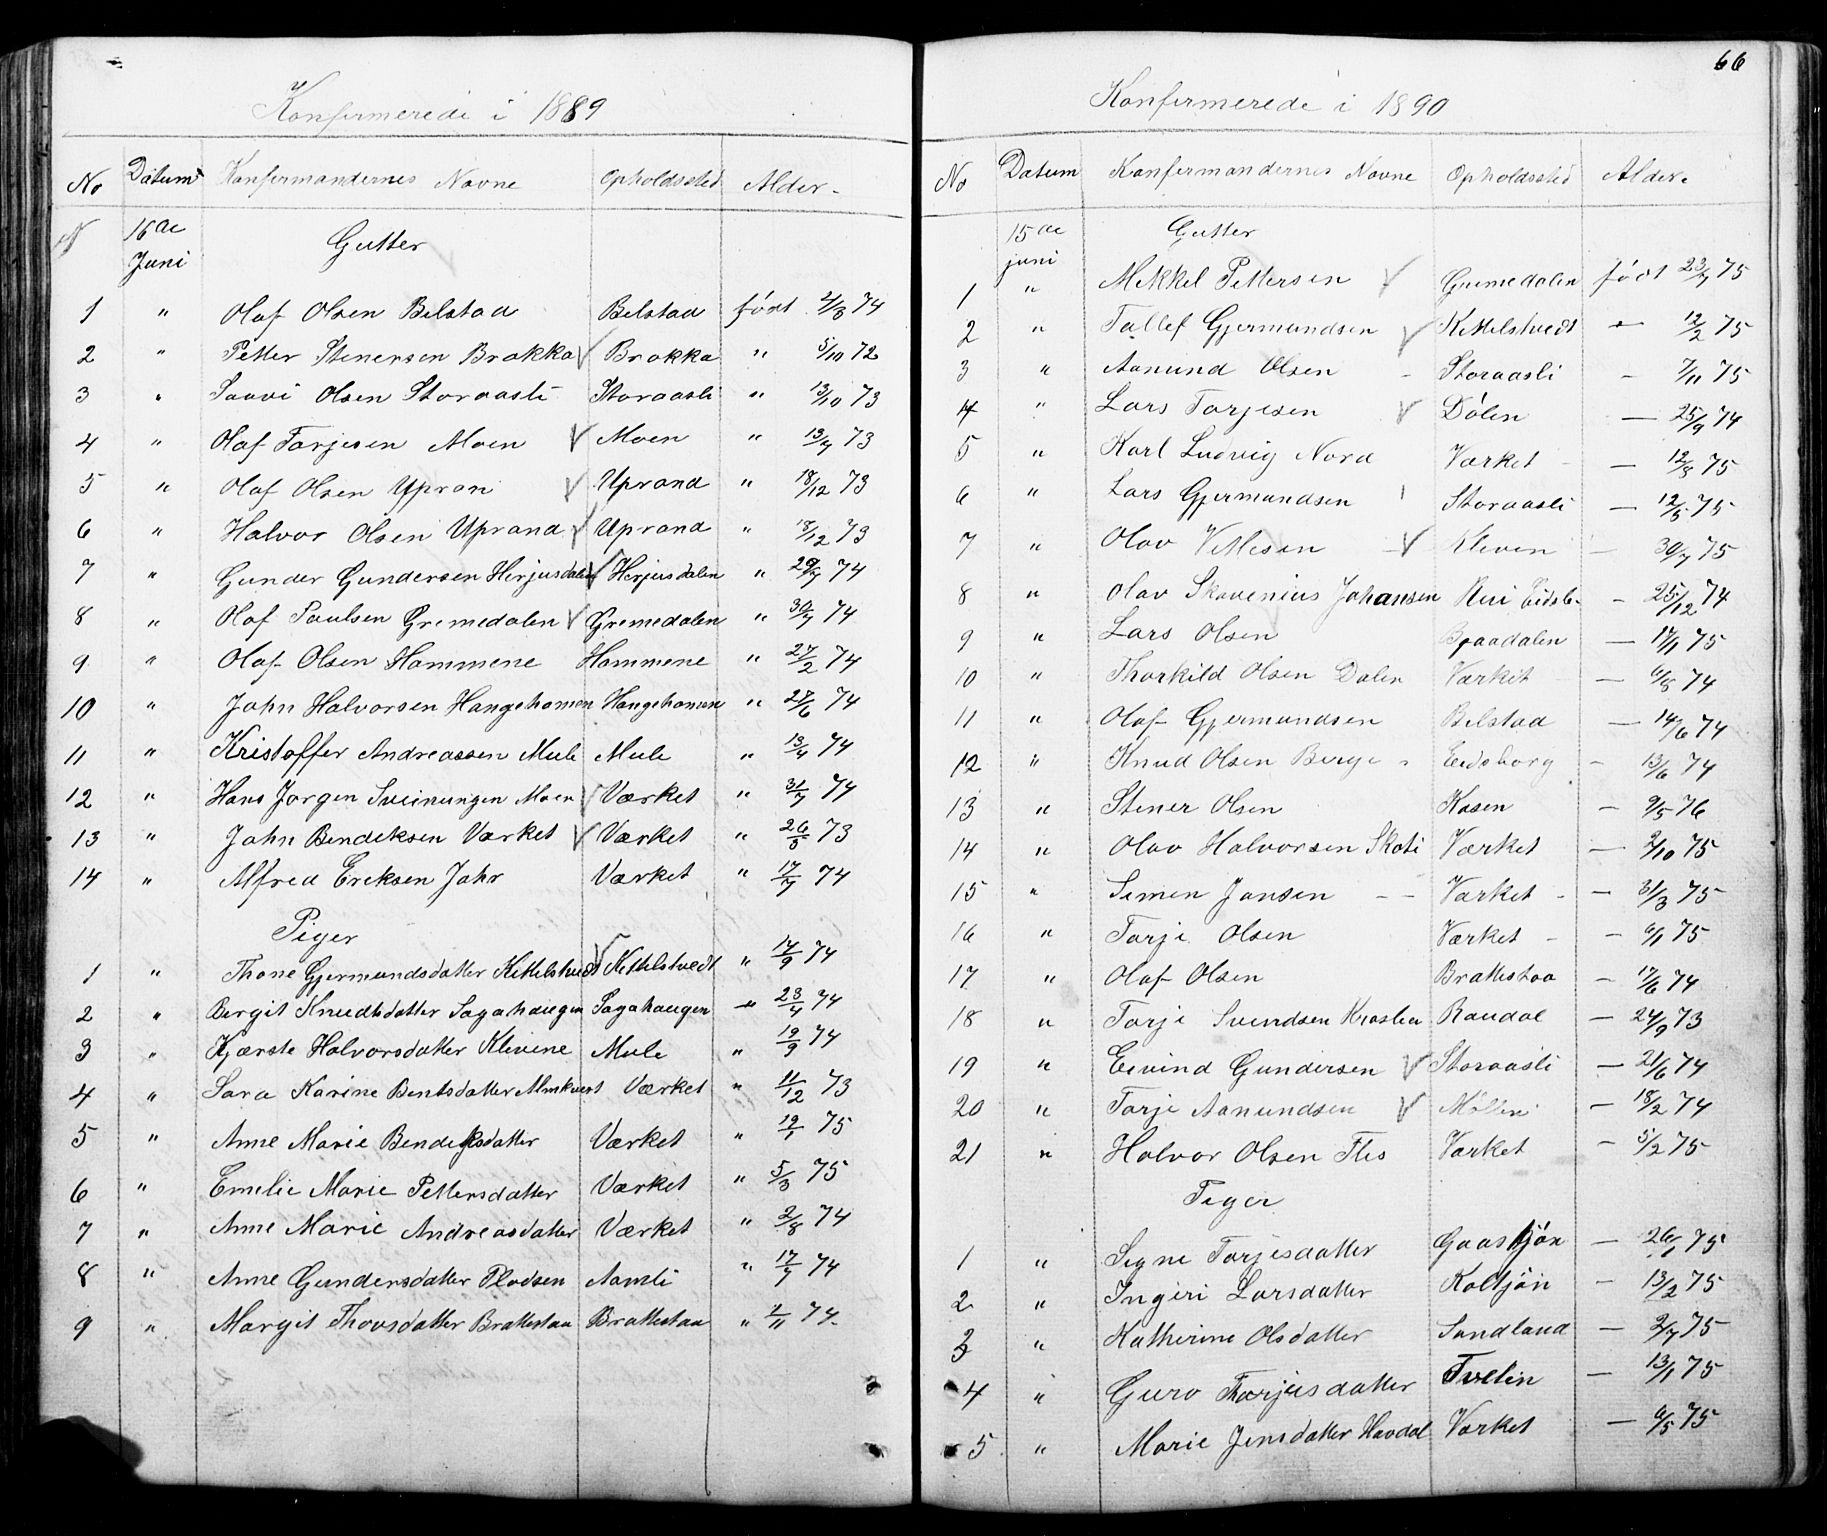 Konfirmerede i 1889
No Datum Konfirmandernes Navne Opholdssted Alder.
16de Juni Gutter
1 " Olaf Olsen Belstad Belstad født 2/3 74
2 " Petter Stenersen Brokka Brokka " 5/10 72
3 " Saavi Olsen Storaasli Storaasli " 13/10 73
4 " Olaf Tarjesen Moen Moen " 73
5 " Olaf Olsen Upran Uprand " 18/12 73
6 " Halvor Olsen Uprand Uprand " 18/12 73
7 " Gunder Gundersen Herjusdalen Herjusdalen " 29/7 74
8 " Olaf Paulsen Gremedalen Gremedalen " 30/7 74
9 " Olaf Olsen Hammene Hammene " 27/2 74
10 " John Halvorsen Hangehomen Hangehomen " 27/6 74
11 " Kristoffer Andreassen Mule Mule " 13/4 74
12 " Hans Jørgen Sveinungen Moen Værket " 31/7 74
13 " John Bendeksen Værket Værket " 26/3 73
14 " Alfred Ereksen Jahr Værket " 17/7 74
Piger
1 " Thone Gjermundsdatter Kittelstvedt Kittelstvedt " 17/9 74
2 " Bergit Knudtsdatter Sagahaugen Sagahaugen " 23/4 74
3 " Kjærste Halvorsdatter Klevene Mule " 19/9 74
4 " Sara Karine Bentsdatter Almkvert Værket " 11/12 73
5 " Anne Marie Bendeksdatter Værket " 19/1 75
6 " Emelie Marie Pettersdatter Værket " 5/3 75
7 " Anne Marie Andreasdatter Værket " 2/8 74
8 " Anne Gundersdatter Plodsen Aamli " 17/7 74
9 " Margit Thovsdatter Brattestaa Brattestaa " 1/11 74
66
Konfermerede i 1890
No Datum Konfermandernes Navne Opholdssted Alder.
15de juni Gutter
1 " Mekkel Pettersen Gremedalen født 23/7 75
2 " Tallef Gjermundsen Kittelstvedt " 12/2 75
3 " Aanund Olsen Storaasli – 7/11 75
4 " Lars Tarjesen Dölen – 25/9 74
5 " Karl Ludvig Nord Værket – 12/8 75
6 " Lars Gjermundsen Storaasli – 12/5 75
7 " Olav Vetlesen Kleven – 30/7 75
8 " Olav Skavenius Johansen – 25/12 74
9 " Lars Olsen Braadalen – 17/1 75
10 " Thorkild Olsen Dalen Værket – 6/8 74
11 " Olaf Gjermundsen Belstad – 14/6 74
12 " Knud Olsen Berge Eidsborg – 13/6 74
13 " Stener Olsen Kasen – 9/5 76
14 " Olav Halvorsen Skoti Værket – 2/10 75
15 " Simen Jansen Værket – 31/3 75
16 " Tarje Olsen Værket – 6/1 75
17 " Olaf Olsen Brattestaa – 17/6 74
18 " Tarje Svendsen Raudal – 24/9 73
19 " Eivind Gundersen Storaasli – 21/6 74
20 " Tarje Aanundsen Møllen – 18/2 74
21 " Halvor Olsen Flis Værket – 5/2 75
Piger
1 " Signe Tarjesdatter Gaastjön – 26/1 75
2 " Ingeri Larsdatter Koltjön – 13/2 75
3 " Katherine Olsdatter Sandland – 2/7 75
4 " Guro Tharjusdatter Tvelin – 13/1 75
5 " Marie Jensdatter Havdal Værket – 6/5 75